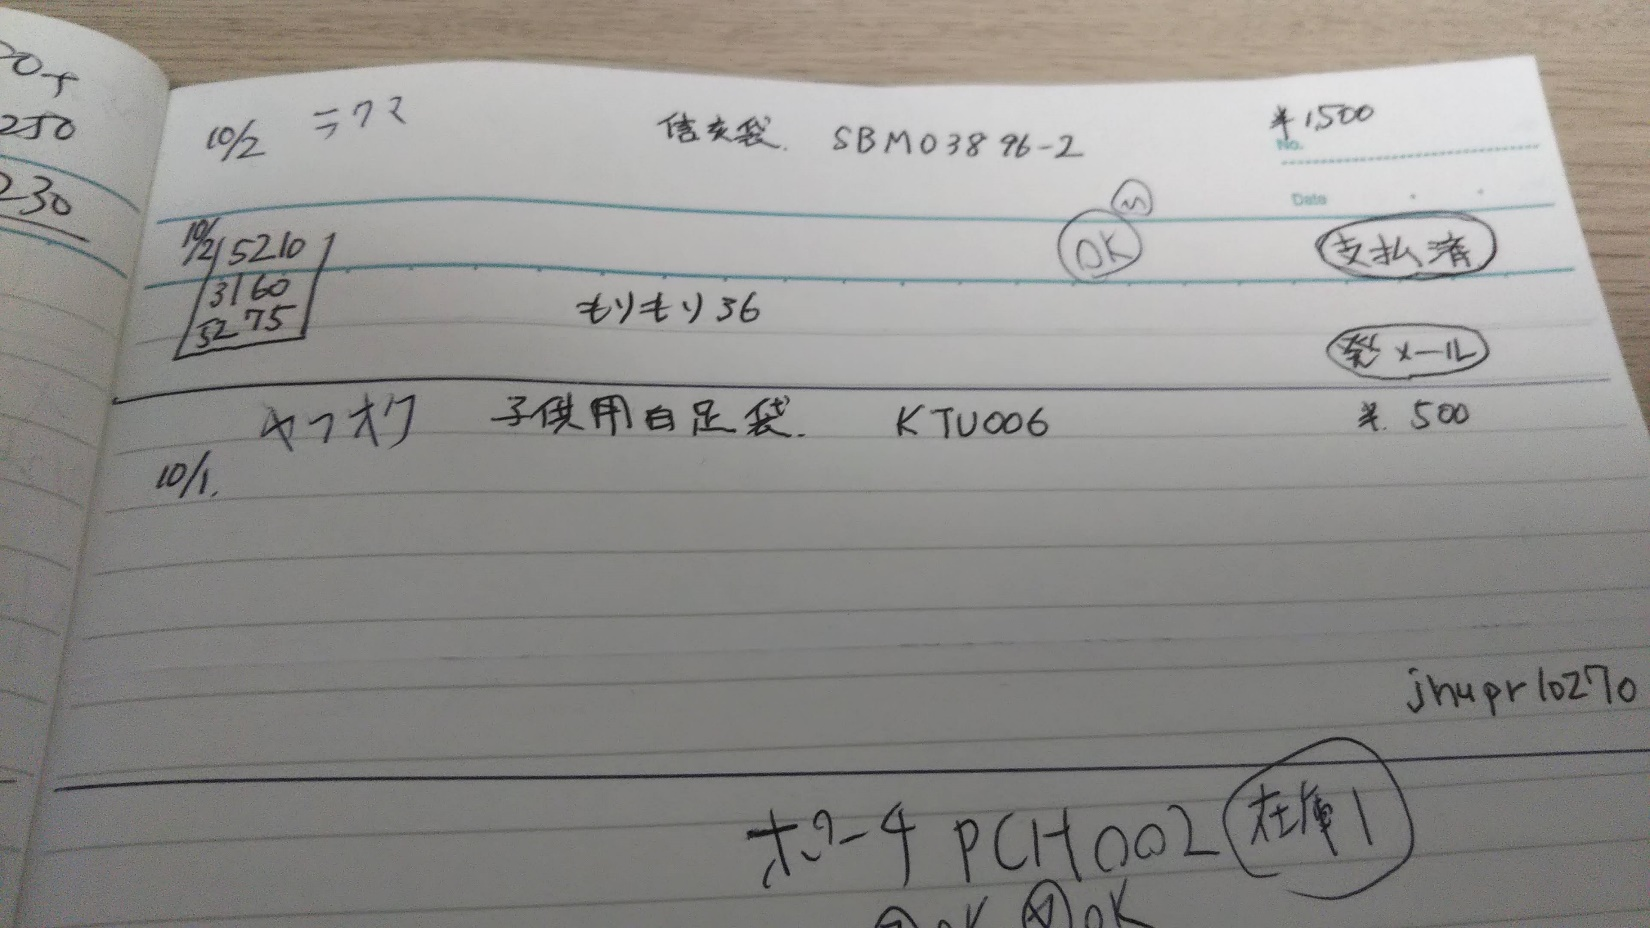 0
250
230
10/2 ラクマ 信玄袋. SBM03896-2 ¥1,500
No.
Date
10/2 5210
3160
5275
OK
支払済
もりもり36
発メール
ヤフオク 子供用白足袋. KTU006 ¥. 500
10/1.
jhupr10270
ポーチ PCH002 在庫1
OK OK